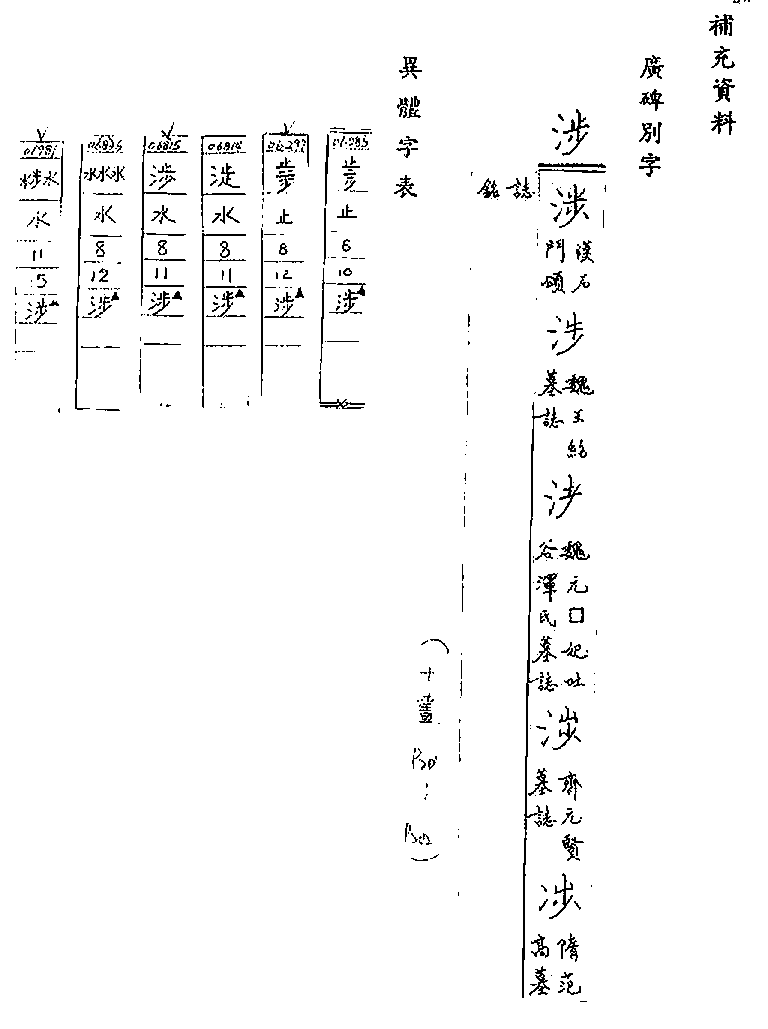 補充資料
廣碑別字
涉
涉
漢石
門頌
涉
魏王紹
墓誌
涉
魏元□妃吐
谷渾氏墓誌
涉
齊元賢
墓誌
涉
隋范
高墓
誌銘
異體字表
(十畫
止
6
10
涉▲
止
8
12
涉▲
06814
水
8
11
涉▲
06815
渉
水
8
11
涉▲
水
8
12
涉▲
水
11
5
涉▲